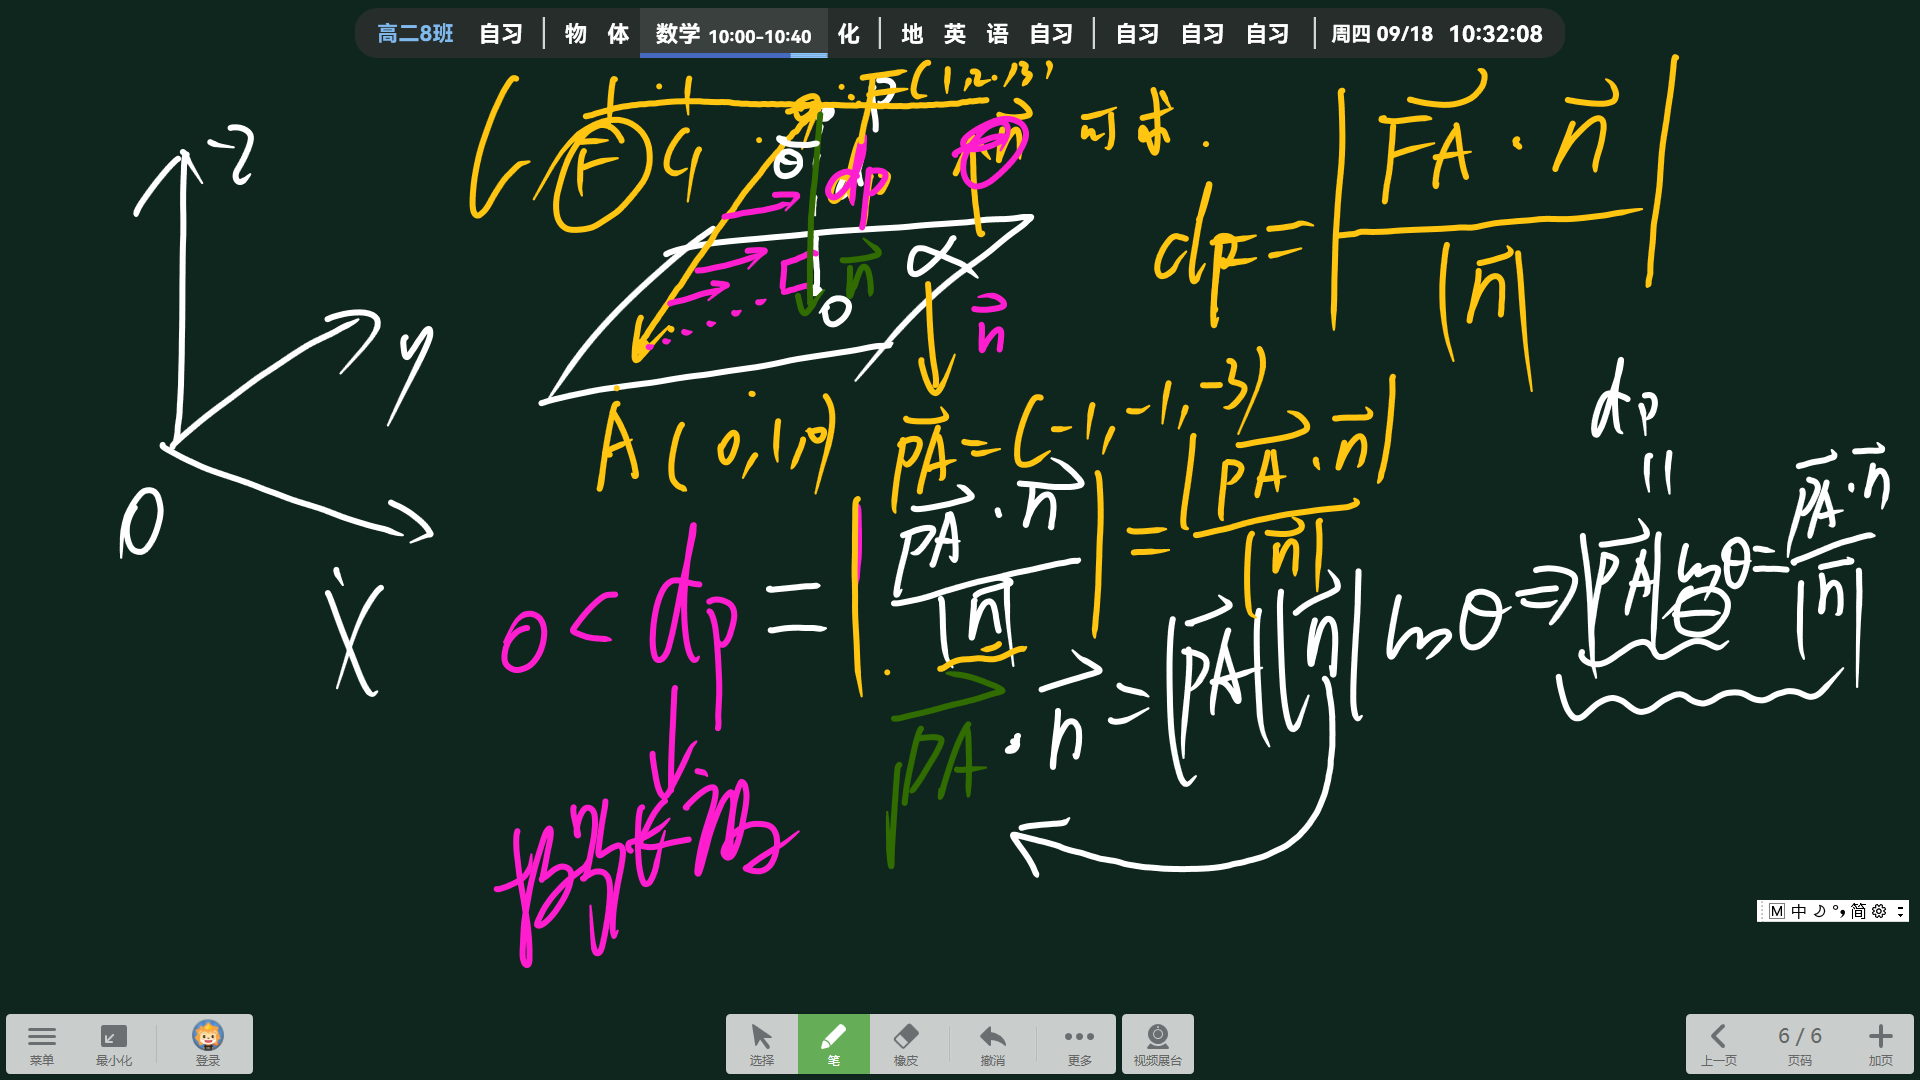 高二8班 自习 | 物 体 数学 10:00-10:40 化 | 地 英 语 自习 | 自习 自习 自习 | 周四 09/18 10:32:08
F(1,2,3)
可求.
z
y
x
O
F
P
θ
dp
n
α
n
O
n
A(0,1,0)
dF=|FA·n/|n||
PA=(-1,-1,-3)
0<dp=|PA·n/|n||=|PA·n|/|n|
dp
=
PA·n=|PA||n|cosθ⇒|PA|cosθ=PA·n/|n|
M 中 简
菜单 最小化 登录 选择 笔 橡皮 撤消 更多 视频展台 上一页 6 / 6 页码 加页